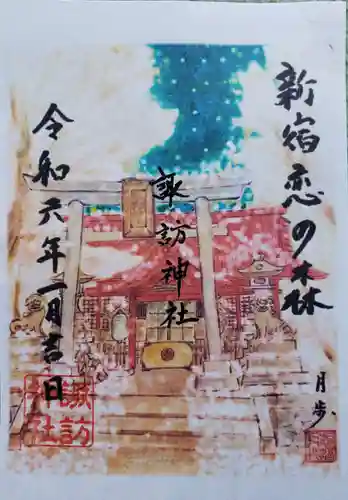 新宿恋の森
諏訪神社
令和六年一月吉日
月歩
諏訪
神社